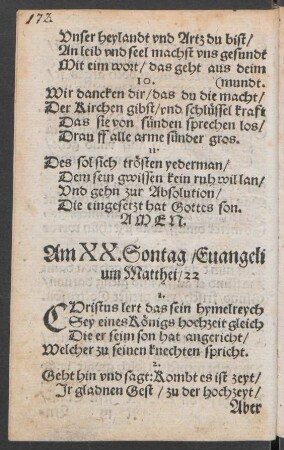 172.
Vnser heylandt vnd Artz du bist/
An leib vnd seel machst vns gesundt
Mit eim wort/ das geht aus deim
10. (mundt.
Wir dancken dir/ das du die macht/
Der Kirchen gibst/ vnd schlüssel krafft
Das sie von sünden sprechen los/
Drauff alle arme sünder gros.
11.
Des sol sich trösten yederman/
Dem sein gwissen kein ruh wil lan/
Vnd gehn zur Absolution/
Die eingesetzt hat Gottes son.
AMEN.
Am XX. Sontag/ Euangeli
um Matthei/ 22
1.
CHristus lert das sein hymelreych
Sey eines Königs hochzeit gleich
Die er seim son hat angericht/
Welcher zu seinen knechten spricht.
2.
Geht hin vnd sagt: Kombt es ist zeyt/
Ir gladnen Gest/ zu der hochzeyt/
Aber